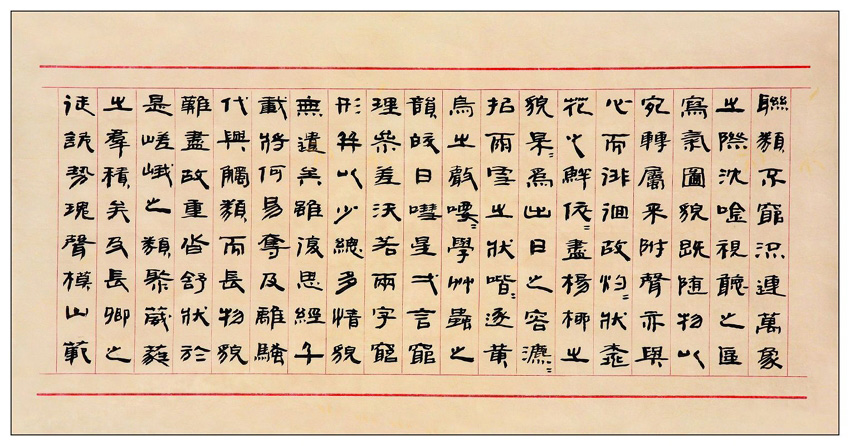 聯類不窮流連萬象
之際沈唫視聽之區
寫氣圖貌既隨物以
宛轉屬采附聲亦與
心而徘徊故灼〻狀桃
花之鮮依〻盡楊柳之
貌杲〻爲出日之容瀌〻
招雨雪之狀喈〻逐黃
鳥之聲喓〻學艸蟲之
韻皎日嘒星弌言窮
理參差沃若兩字窮
形并以少總多情貌
無遺矣雖復思經千
載將何易奪及離騷
代興觸類而長物貌
難盡故重沓舒狀於
是嵯峨之類聚葳蕤
之羣積矣及長卿之
徒詭勢瑰聲模山範